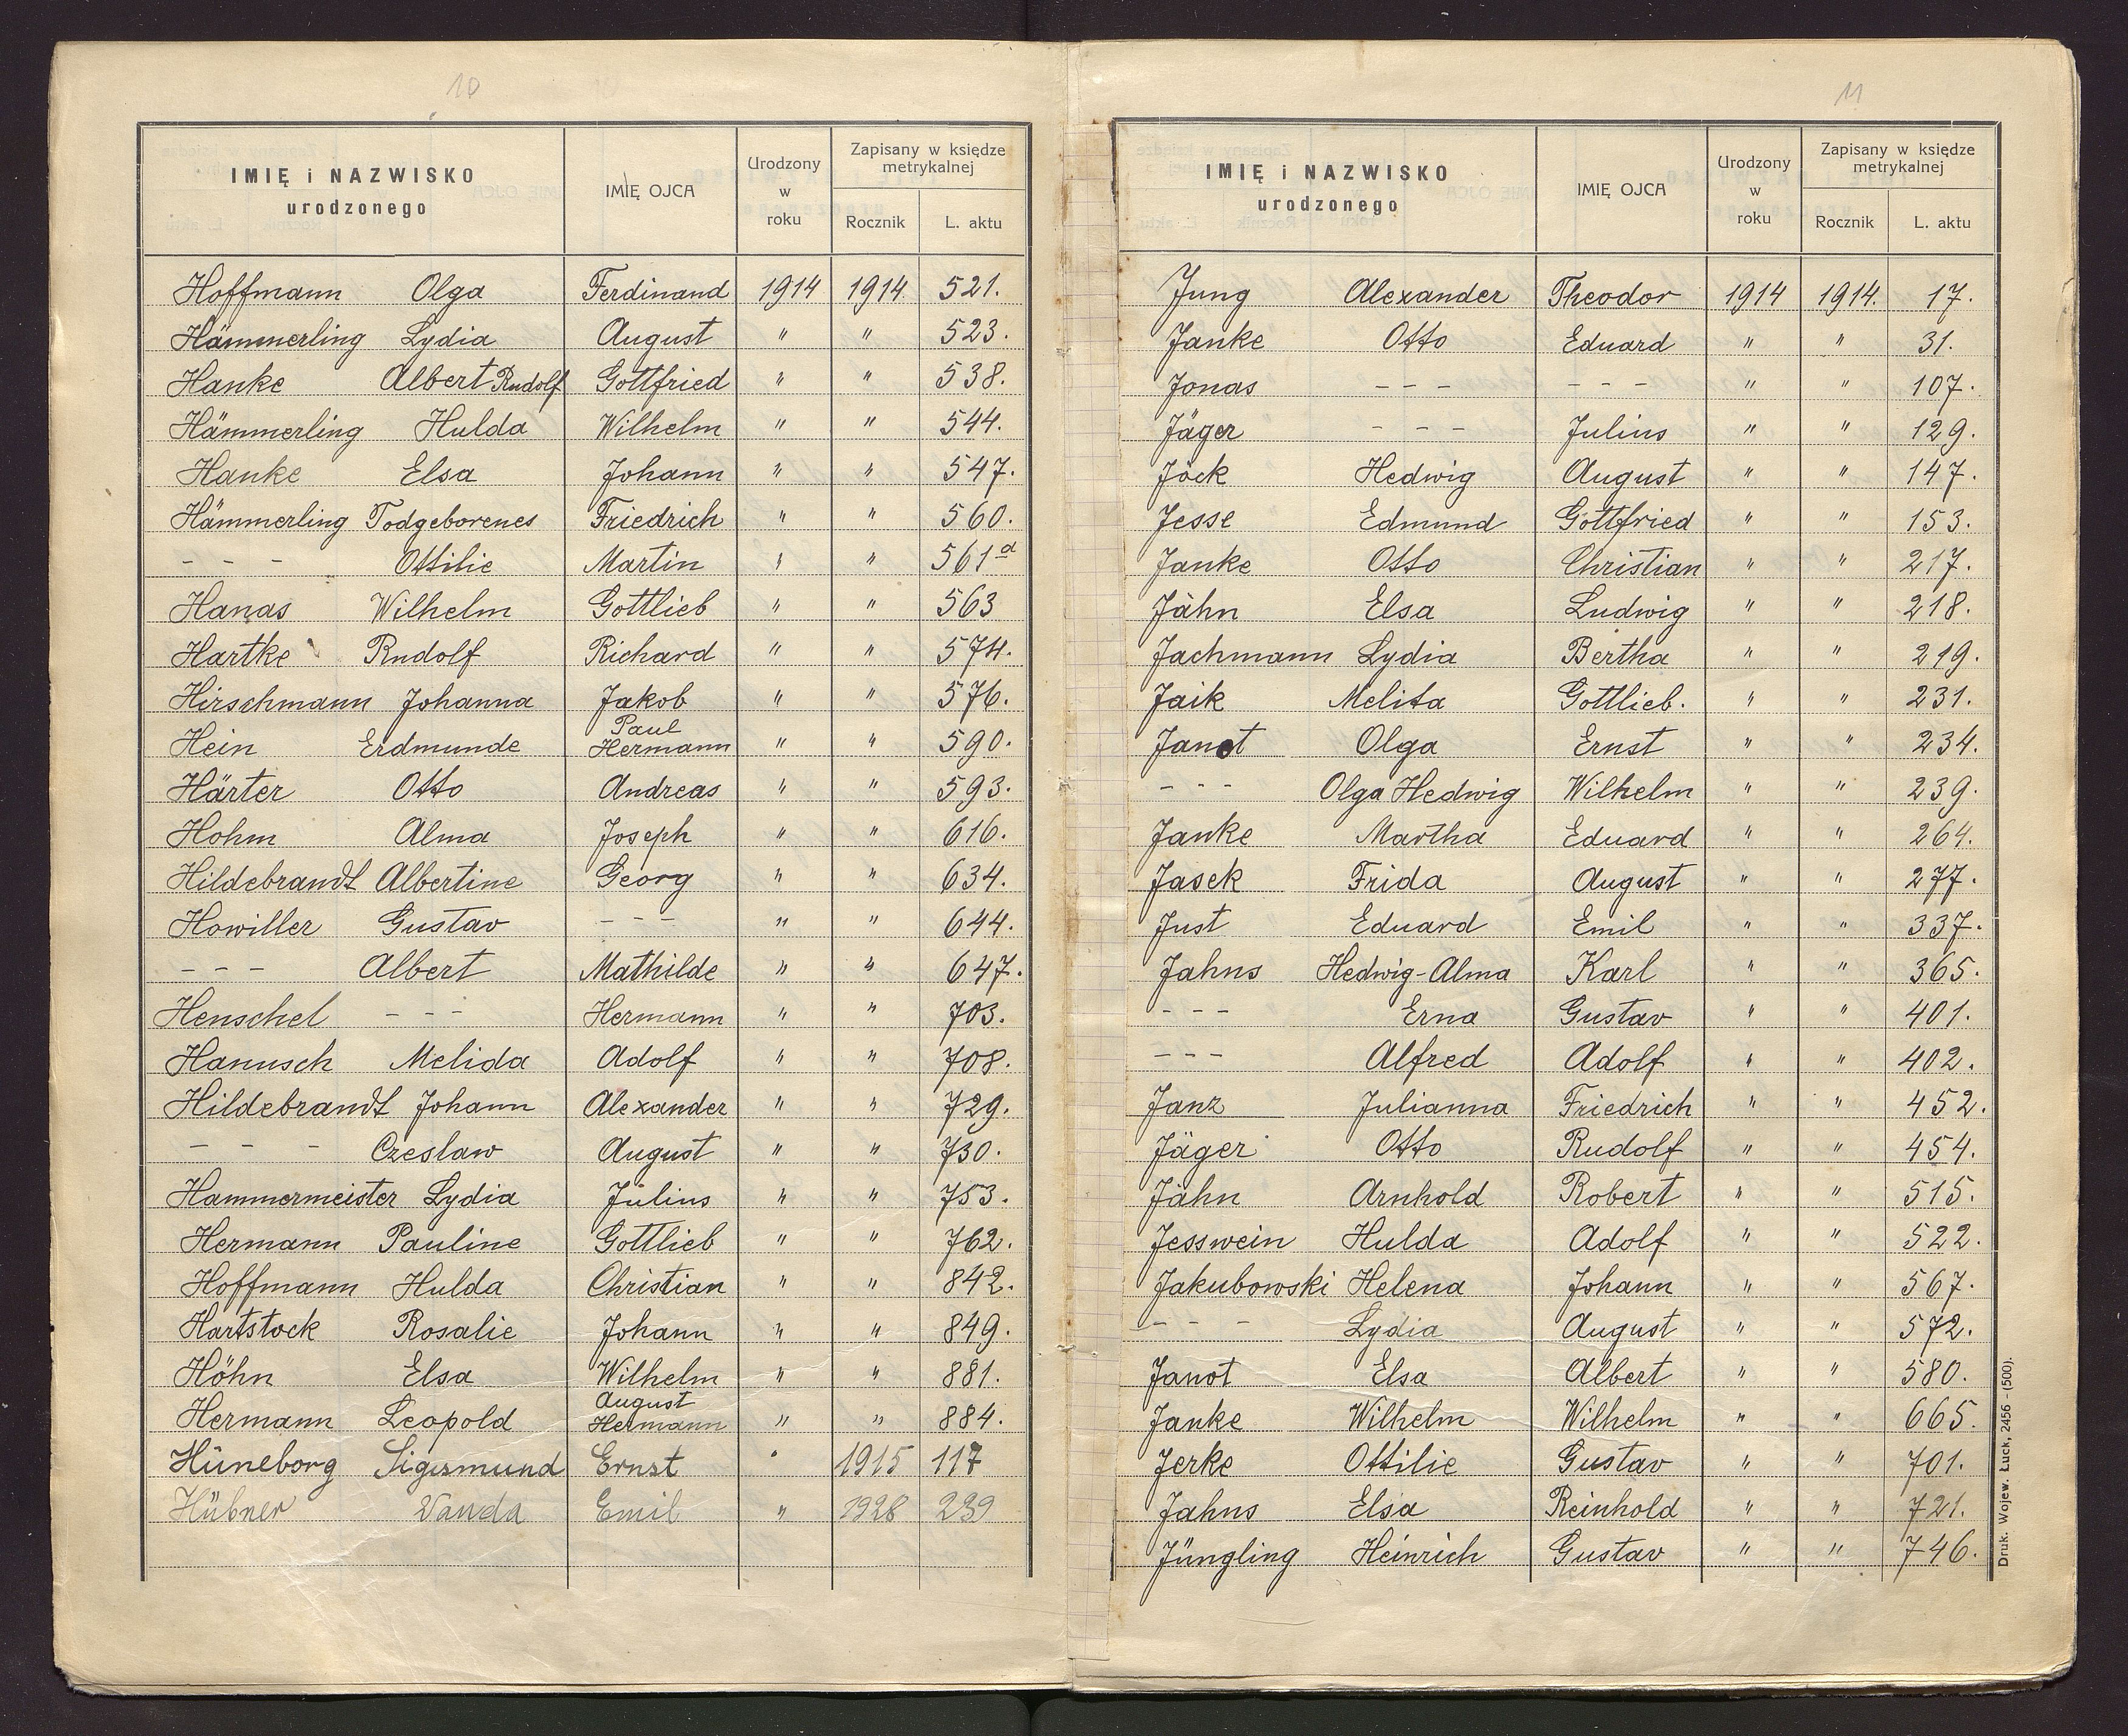 10
IMIĘ i NAZWISKO urodzonego | IMIĘ OJCA | Urodzony w roku | Zapisany w księdze metrykalnej
Rocznik | L. aktu
Hoffmann Olga | Ferdinand | 1914 | 1914 | 521.
Hämmerling Lydia | August | " | " | 523.
Hanke Albert Rudolf | Gottfried | " | " | 538.
Hämmerling Hulda | Wilhelm | " | " | 544.
Hanke Elsa | Johann | " | " | 547.
Hämmerling Todgeborenes | Friedrich | " | " | 560.
- - - Ottilie | Martin | " | " | 561a
Hanas Wilhelm | Gottlieb | " | " | 563
Hartke Rudolf | Richard | " | " | 574.
Hirschmann Johanna | Jakob | " | " | 576.
Hein Erdmunde | Paul Hermann | " | " | 590.
Härter Otto | Andreas | " | " | 593.
Hohm Alma | Joseph | " | " | 616.
Hildebrandt Albertine | Georg | " | " | 634.
Howiller Gustav | - - - | " | " | 644.
- - - Albert | Mathilde | " | " | 647.
Henschel - - - | Hermann | " | " | 703.
Hanusch Melida | Adolf | " | " | 708.
Hildebrandt Johann | Alexander | " | " | 729.
- - - Czeslaw | August | " | " | 730.
Hammermeister Lydia | Julius | " | " | 753.
Hermann Pauline | Gottlieb | " | " | 762.
Hoffmann Hulda | Christian | " | " | 842.
Hartstock Rosalie | Johann | " | " | 849.
Höhn Elsa | Wilhelm | " | " | 881.
Hermann Leopold | August Hermann | " | " | 884.
Hüneborg Sigismund | Ernst | " | 1915 | 117
Hübner Wanda | Emil | " | 1928 | 239
11
IMIĘ i NAZWISKO urodzonego | IMIĘ OJCA | Urodzony w roku | Zapisany w księdze metrykalnej
Rocznik | L. aktu
Jung Alexander | Theodor | 1914 | 1914. | 17.
Janke Otto | Eduard | " | " | 31.
Jonas - - - | - - - | " | " | 107.
Jäger - - - | Julius | " | " | 129.
Jöck Hedwig | August | " | " | 147.
Jesse Edmund | Gottfried | " | " | 153.
Janke Otto | Christian | " | " | 217.
Jähn Elsa | Ludwig | " | " | 218.
Jachmann Lydia | Bertha | " | " | 219.
Jaik Melita | Gottlieb. | " | " | 231.
Janot Olga | Ernst | " | " | 234.
- - - Olga Hedwig | Wilhelm | " | " | 239.
Janke Martha | Eduard | " | " | 264.
Jasek Frida | August | " | " | 277.
Just Eduard | Emil | " | " | 337.
Jahns Hedwig-Alma | Karl | " | " | 365.
- - - Erna | Gustav | " | " | 401.
- - - Alfred | Adolf | " | " | 402.
Janz Julianna | Friedrich | " | " | 452.
Jäger Otto | Rudolf | " | " | 454.
Jähn Arnhold | Robert | " | " | 515.
Jesswein Hulda | Adolf | " | " | 522.
Jakubowski Helena | Johann | " | " | 567.
- - - Lydia | August | " | " | 572.
Janot Elsa | Albert | " | " | 580.
Janke Wilhelm | Wilhelm | " | " | 665.
Jerke Ottilie | Gustav | " | " | 701.
Jahns Elsa | Reinhold | " | " | 721.
Jüngling Heinrich | Gustav | " | " | 746.
Druk. Wojew. Łuck, 2456 - (500).